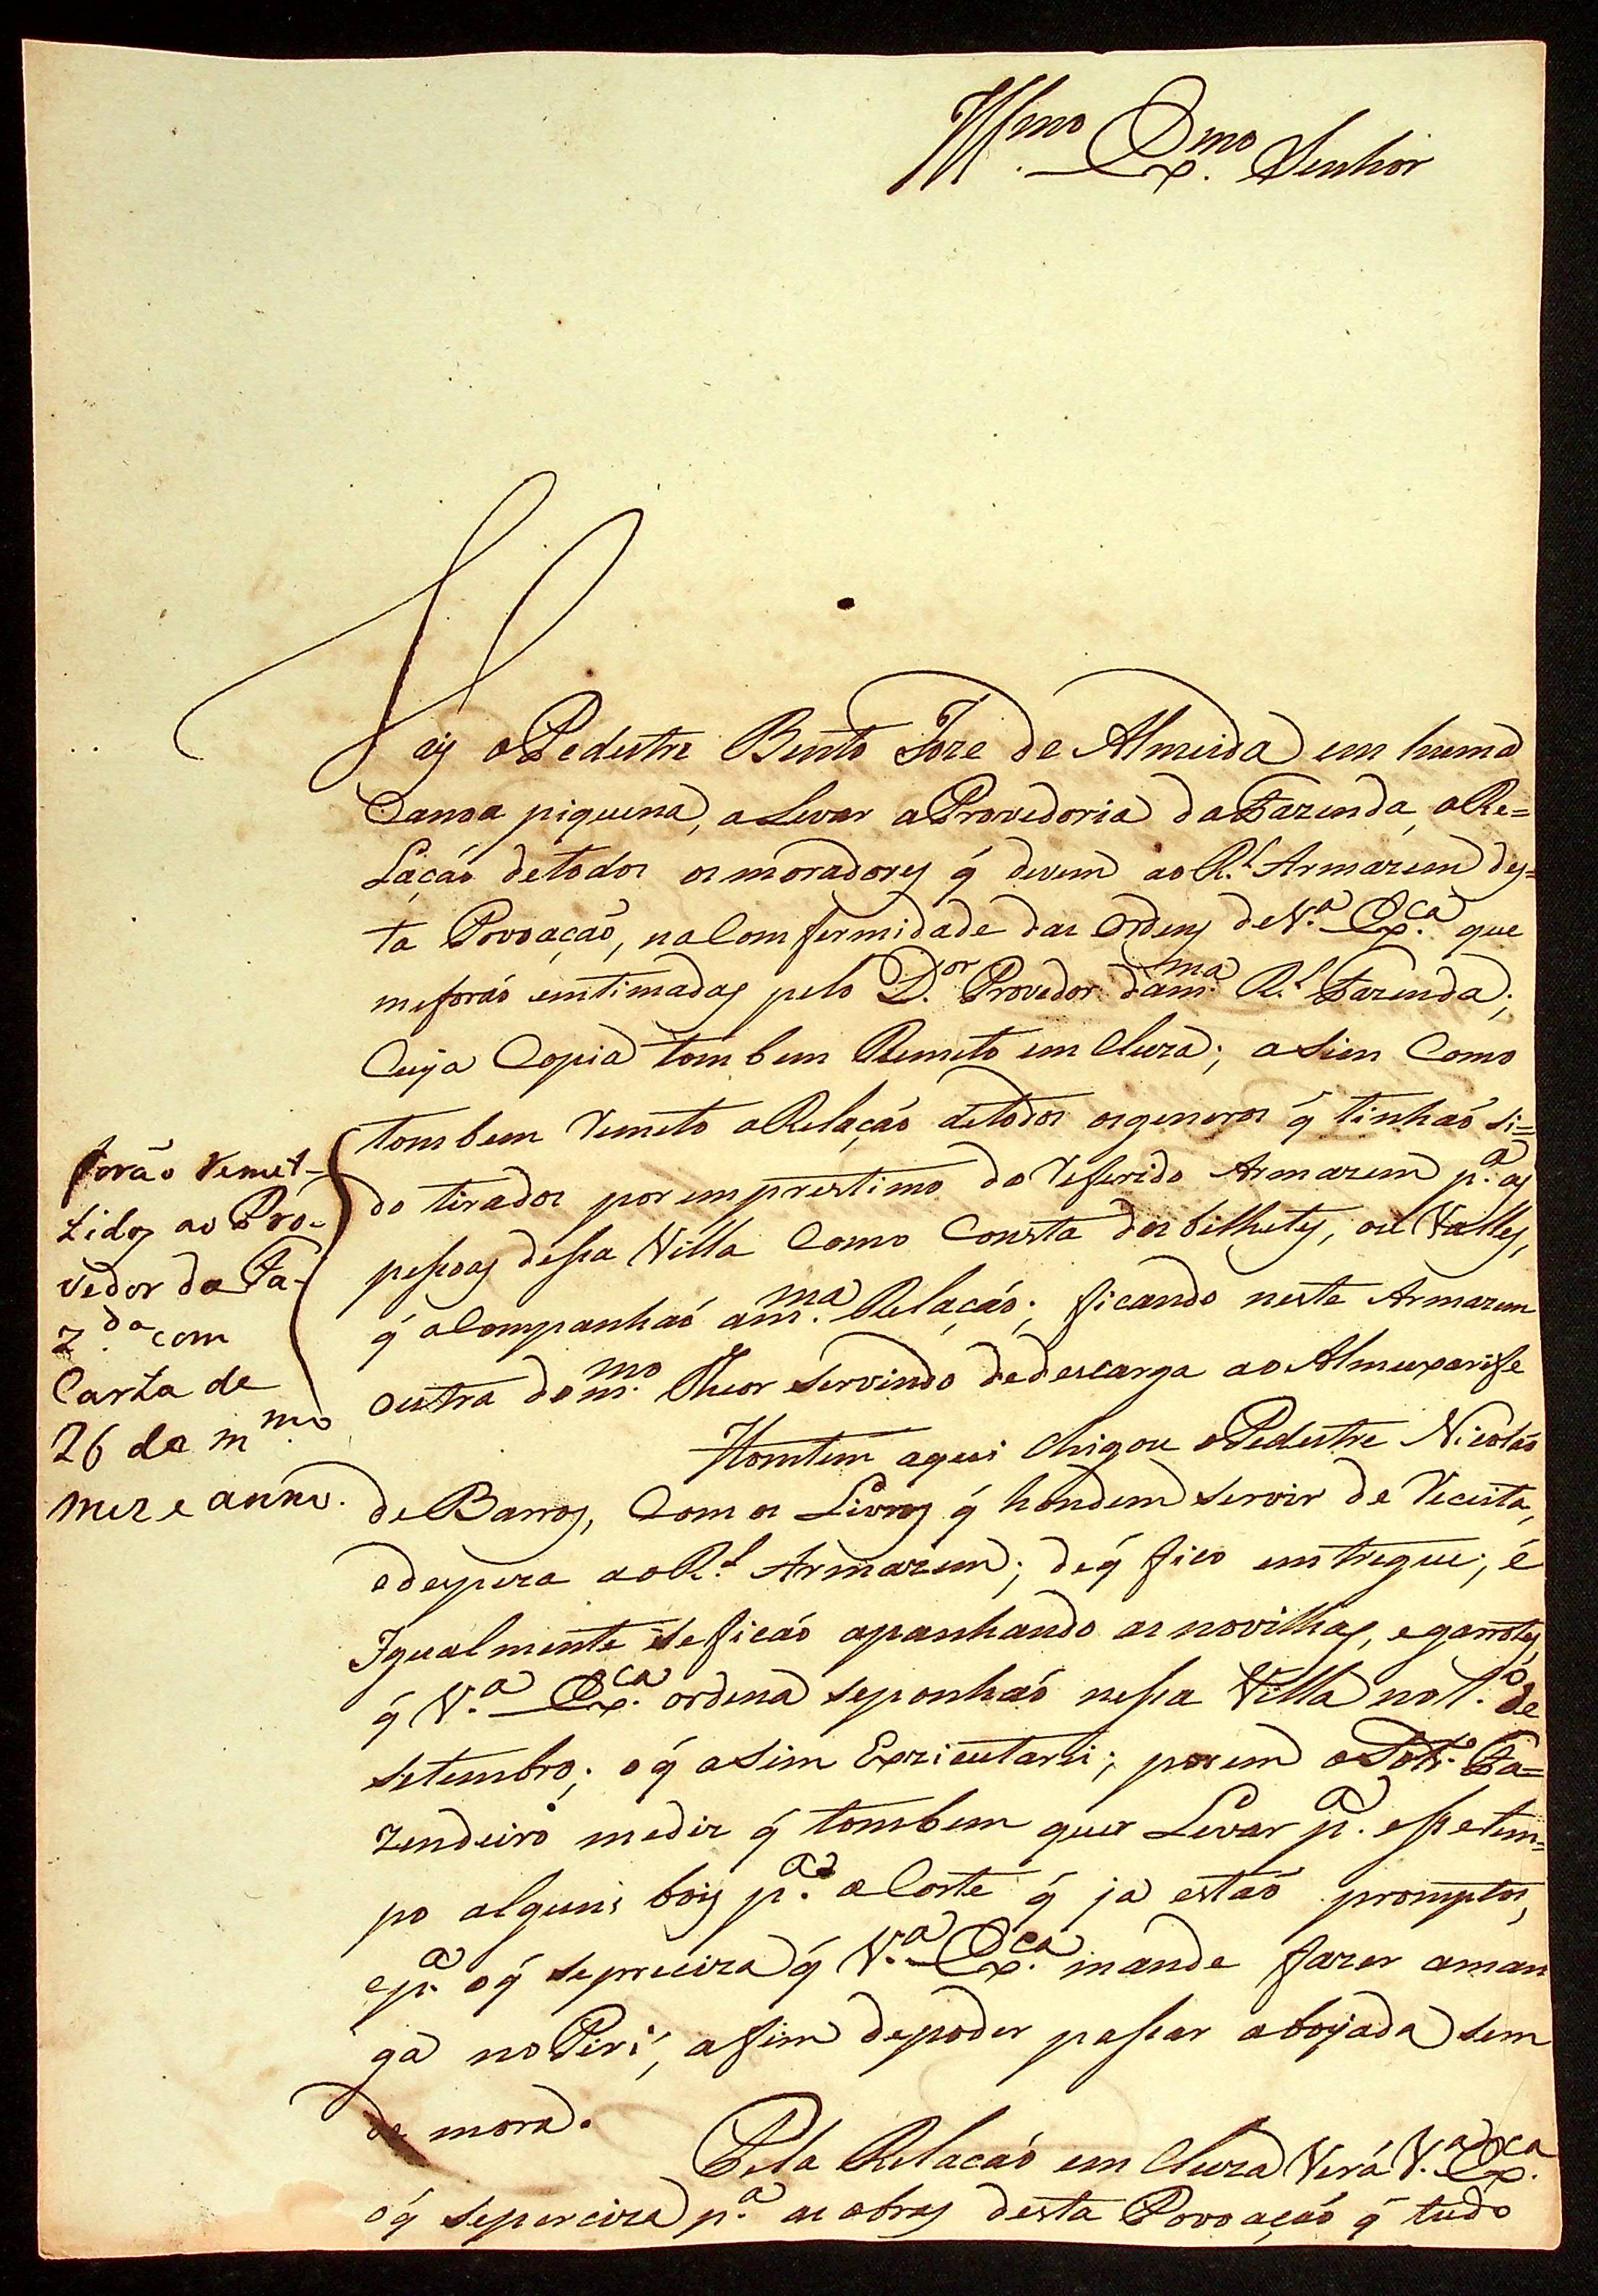 Illmo. Exmo. Senhor
Hey o Pedestre Bento Joze de Almeida em huma
Canoa piquena, a Levar a Provedoria da Fazenda, a Re=
Laçaõ de todos os moradores q̃ devem ao R.l Armazem des=
ta Povoaçaõ, na Comfermidade das Ordens de V.a Ex.ca que
me foraõ emtimadas pelo D.or Provedor da m.ma R.l Fazenda;
Cuja Copia tombem Remeto em Cluza; asim Como
tombem Remeto a Relaçaõ de todos os generos q̃ tinhaõ si=
do tirados por emprestimo do Referido Armazem p.a as
pessoas dessa Villa Como Consta dos bilhetes, ou Valles,
q̃ aCompanhaõ a m.ma Relaçaõ; ficando neste Armazem
outra do m.mo Theor servindo de descarga ao Almuxarife
Homtem aqui Chigou o Pedestre Nicoláo
de Barros, Com os Livros q̃ hondem servir de Receita,
e despeza ao R.l Armazem; de q̃ fico emtregue; é
Igualmente se ficaõ apanhando as novilhas, e garrotes,
q̃ V.a Ex.ca ordena se ponhaõ nessa Villa no 1.o de
setembro; o q̃ asim Exzicutarei; porem o Fa=
zendeiro me diz q̃ tombem quer Levar p.a esse tem=
po alguns bois p.a o Corte q̃ ja estaõ promptos,
e p.a o q̃ se preciza q̃ V.a Ex.ca mande fazer a man
ga no Piri, a fim de poder passar a boyada sem
de mora.
Pela Relaçaõ em Cluza Verá V.a Ex.ca
o q̃ se perciza p.a as obras desta Povoaçaõ q̃ tudo
foraõ Remet-
tidos ao Pro-
vedor da Fa-
z.da com
Carta de
26 do m.mo
mez e anno.